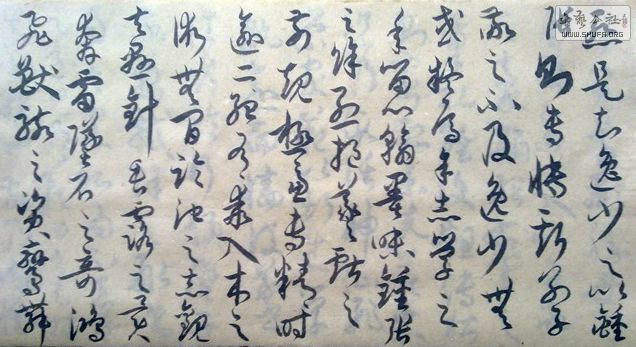 慙是知逸少之比鍾
張則專博斯別子
敬之不及逸少無
或疑焉余志學之
年留心翰墨味鍾張
之餘烈挹羲獻之
前規極慮專精時
逾二紀有乖入木之
術無間臨池之志觀
夫懸針垂露之異
奔雷墜石之奇鴻
飛獸駭之資鸞舞
WWW.SHUFA.ORG